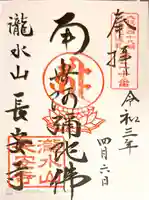 奉拝
令和三年
四月六日
南無阿彌陀佛
瀧水山
長安寺